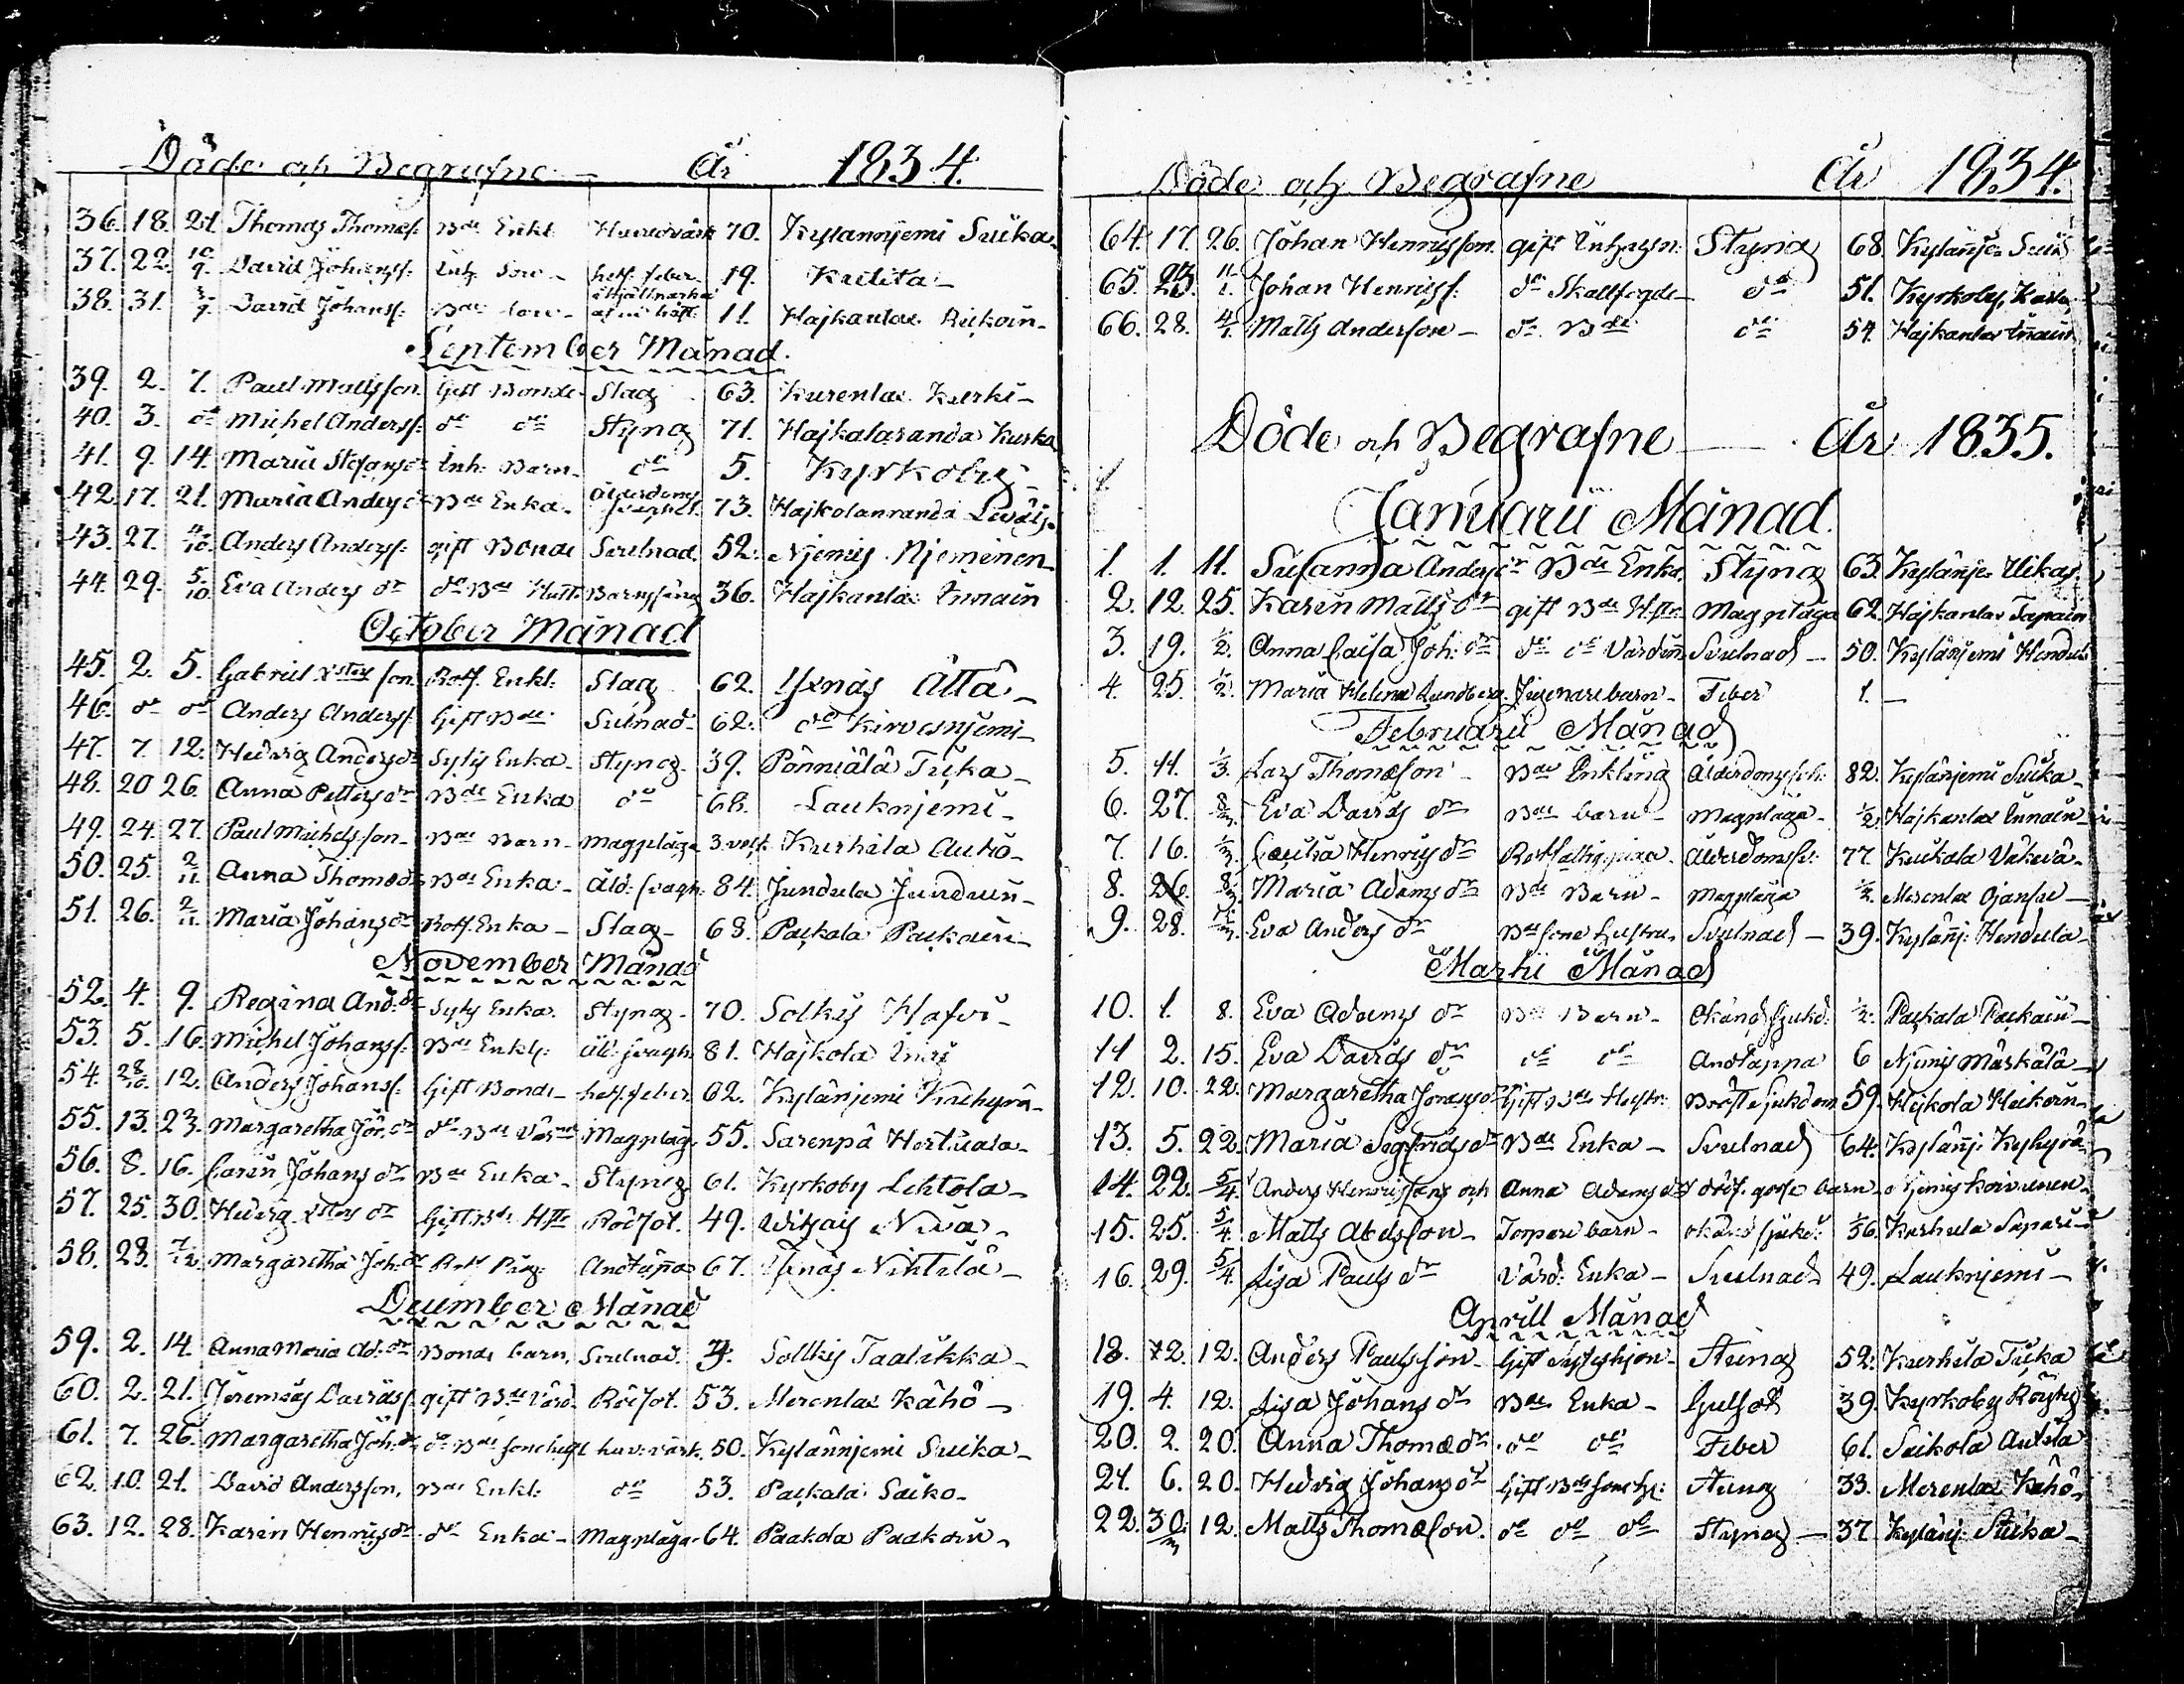 Döde och Begrafne År 1834.
36. 18. 21. Thomas Thomæs. Bde Enkl. Hufvudvärk 70. Kylännjemi Suika
37. 22. 10/9. David Johanss. Inh. Son hets. feber 19.
38. 31. 3/9. David Johanss. Bde Son 11. Hajkanlax
September Månad.
39. 2. 7. Paul Mattsson. Gift Bonde Slag 63. Kurenlax Kurki
40. 3. do Michel Anderss. do do Styng 71. Hajkalaranda
41. 9. 14. Maria Stefansdr Inh. Barn do 5. Kyrkoby
42. 17. 21. Maria Andersdr Bde Enka Ålderdoms 73. Hajkolanranda
43. 27. 4/10. Anders Anderss. gift Bonde Svulnad 52. Njemis Njeminen
44. 29. 5/10. Eva Anders dr do Bde Hust. Barnssäng 36. Hajkanlax Innain
October Månad
45. 2. 5. Gabriel Xsters son. Rotf. Enkl. Slag 62. Yxnäs Ättä
46. do do Anders Anderss. Gift Bde Sulnad 62. do Kirvesnjemi
47. 7. 12. Hedvig Andersdr Sytn. Enka Styng 39. Pönniälä Tuka
48. 20 26. Anna Petters dr Bde Enka do 68. Lauknjemi
49. 24. 27. Paul Michelsson Bde Barn Magplåga 3 veck. Kurhila Auko
50. 25. 2/11. Anna Thomædr Bde Enka Åld. svagh. 84. Jundula Junduin
51. 26. 2/11. Maria Johansdr Rotf. Enka Slag 68. Packala Packain
November Månad
52. 4. 9. Regina And. dr Sytn. Enka Styng 70. Solkis Hafvi
53. 5. 16. Michel Johanss. Bde Enkl. Åld. svagh. 81. Hajkola
54. 28/10. 12. Anders Johanss. Gift Bonde hets. feber 62. Kylänjemi
55. 13. 23. Margaretha Joh. dr do Bde Magplåg. 55. Sarenpä Hertuala
56. 8. 16. Carin Johans dr Bde Enka Styng 61. Kyrkoby Lehtola
57. 25. 30. Hedvig Xsters dr Gift Bde Hstr Rödsot. 49.
58. 28. 7/12. Margaretha Joh. dr Andtäppa 67. Yxnäs Nihtilä
December Månad
59. 2. 14. Anna Maria Ad. dr Bonde barn. Svulnad. Solkis Taalikka
60. 2. 21. Jeremias Davidss. gift Bde Värd. Rödsot. 53. Merenlax Kähö
61. 7. 26. Margaretha Joh. dr do Bde huv. värk. 50. Kylännjemi Suika
62. 10. 21. David Andersson. Bde Enkl. do 53. Packala Saiko
63. 12. 28. Karin Henrics dr do Enka Magplåga 64. Paakola Paakoin
Döde och Begrafne År 1834.
64. 17. 26. Johan Henricsson. gift Styng 68. Kylänje
65. 23. 11/1. Johan Henricss. do Skattfogde do 51. Kyrkoby
66. 28. 4/1. Matts Andersson do Bde do 54. Hajkanlax Innain
Döde och Begrafne År 1835.
Januarii Månad.
1. 1. 11. Susanna Andersdr Bde Enka Styng 63. Kylänje Uikas
2. 12. 25. Karin Matts dr gift Bde Hstr. Magplåga 62. Hajkanlax Tapain
3. 19. 1/2. Anna Caisa Joh. dr do do Värdinn. Svulnad 50. Kylänjemi Hendula
4. 25. 1/2. Maria Helena Lundberg barn Feber 1.
Februarii Månad
5. 11. 1/3. Lars Thomæson Bde Enkling Ålderdomssch. 82. Kylänjemi Suika
6. 27. 8/3. Eva Davids dr Bde barn Magplåga 1/2. Hajkanlax Innain
7. 16. 1/3. Cæcilia Henrics dr Rotfattig piga Ålderdomssv. 77. Kuckala Väkevä
8. 26. 8/3. Maria Adams dr Bde Barn Magplåga 1/2. Merenlax
9. 28. Eva Anders dr Bde Sons hustru Svulnad 39. Kylänj. Hendula
Martii Månad
10. 1. 8. Eva Adams dr Bde Barn Okänd sjukd. 1/2. Packala Packain
11 2. 15. Eva Davids dr do do Andtäppa 6 Njemis Märkälä
12. 10. 22. Margaretha Jonæ dr Gift Bde Hustr. Bröstsjukdom 59. Hejkola Heikoin
13. 5. 22. Maria Sigfrids dr Bde Enka Svulnad 64. Kylänj. Kyhyrä
14. 22. 5/4. Anders Henricssons och Anna Adams drs dödf. gosse barn Njemis Koivunen
15. 25. 5/4. Matts Abelsson barn okänd sjukd. Kurhula Sapari
16. 29. 5/4. Lisa Pauls dr Värd. Enka Svulnad 49. Lauknjemi
Aprill Månad
18. 12. Anders Paulsson Gift Sytnshjon Stung 52. Kurhila Tuka
19. 4. 12. Lisa Johans dr Bde Enka Gulsot 39. Kyrkoby
20. 2. 20. Anna Thomædr do do Feber 61. Saikola Antila
21. 6. 20. Hedvig Johans dr Gift Bde Stung 33. Merenlax Kähö
22. 30/3 12. Matts Thomæson. do do do Styng 37 Kylänj. Suika